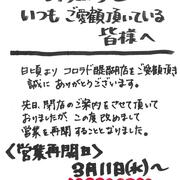 いつもご愛顧頂いている
皆様へ
日頃より コロラド醍醐店をご愛顧頂き
誠にありがとうございます。
先日、閉店のご案内をさせて頂いて
おりましたが、この度改めまして
営業を再開することとなりました。
〈営業再開日〉
3月11日(水)〜